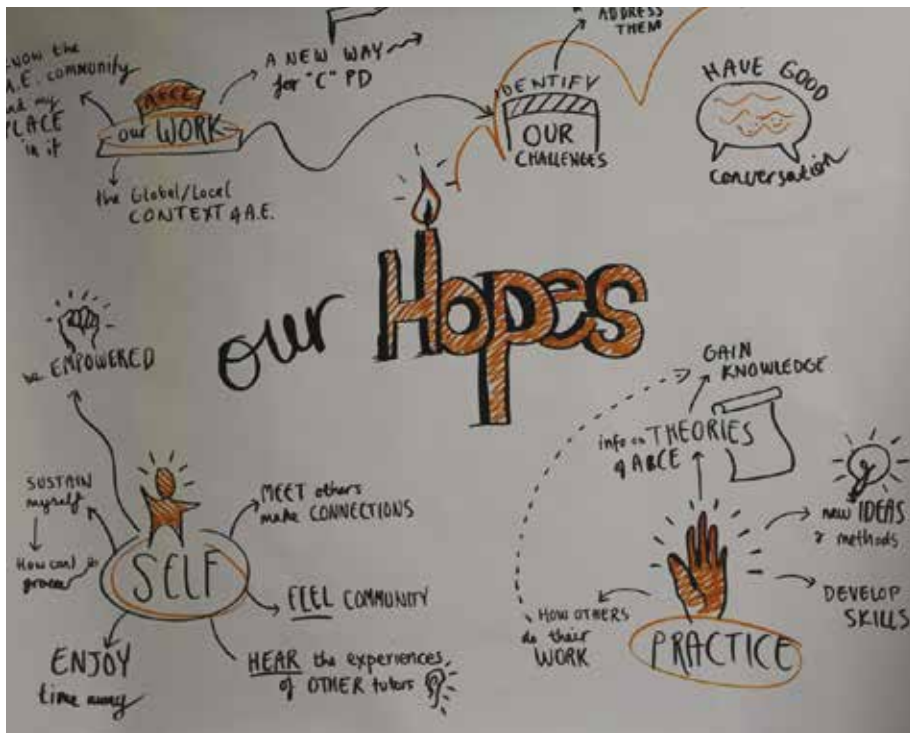 KNOW the
A.E. community
and my
PLACE
in it
our WORK
A NEW WAY
for "C" PD
the Global/Local
CONTEXT of A.E.
ADDRESS
THEM
IDENTIFY
OUR
CHALLENGES
HAVE GOOD
conversation
our Hopes
be EMPOWERED
SUSTAIN
myself
How can I
SELF
MEET others
make CONNECTIONS
FEEL COMMUNITY
HEAR the experiences
of OTHER tutors
ENJOY
time away
GAIN
KNOWLEDGE
info on THEORIES
of ABCE
new IDEAS
& methods
DEVELOP
SKILLS
HOW OTHERS
do their
WORK
PRACTICE